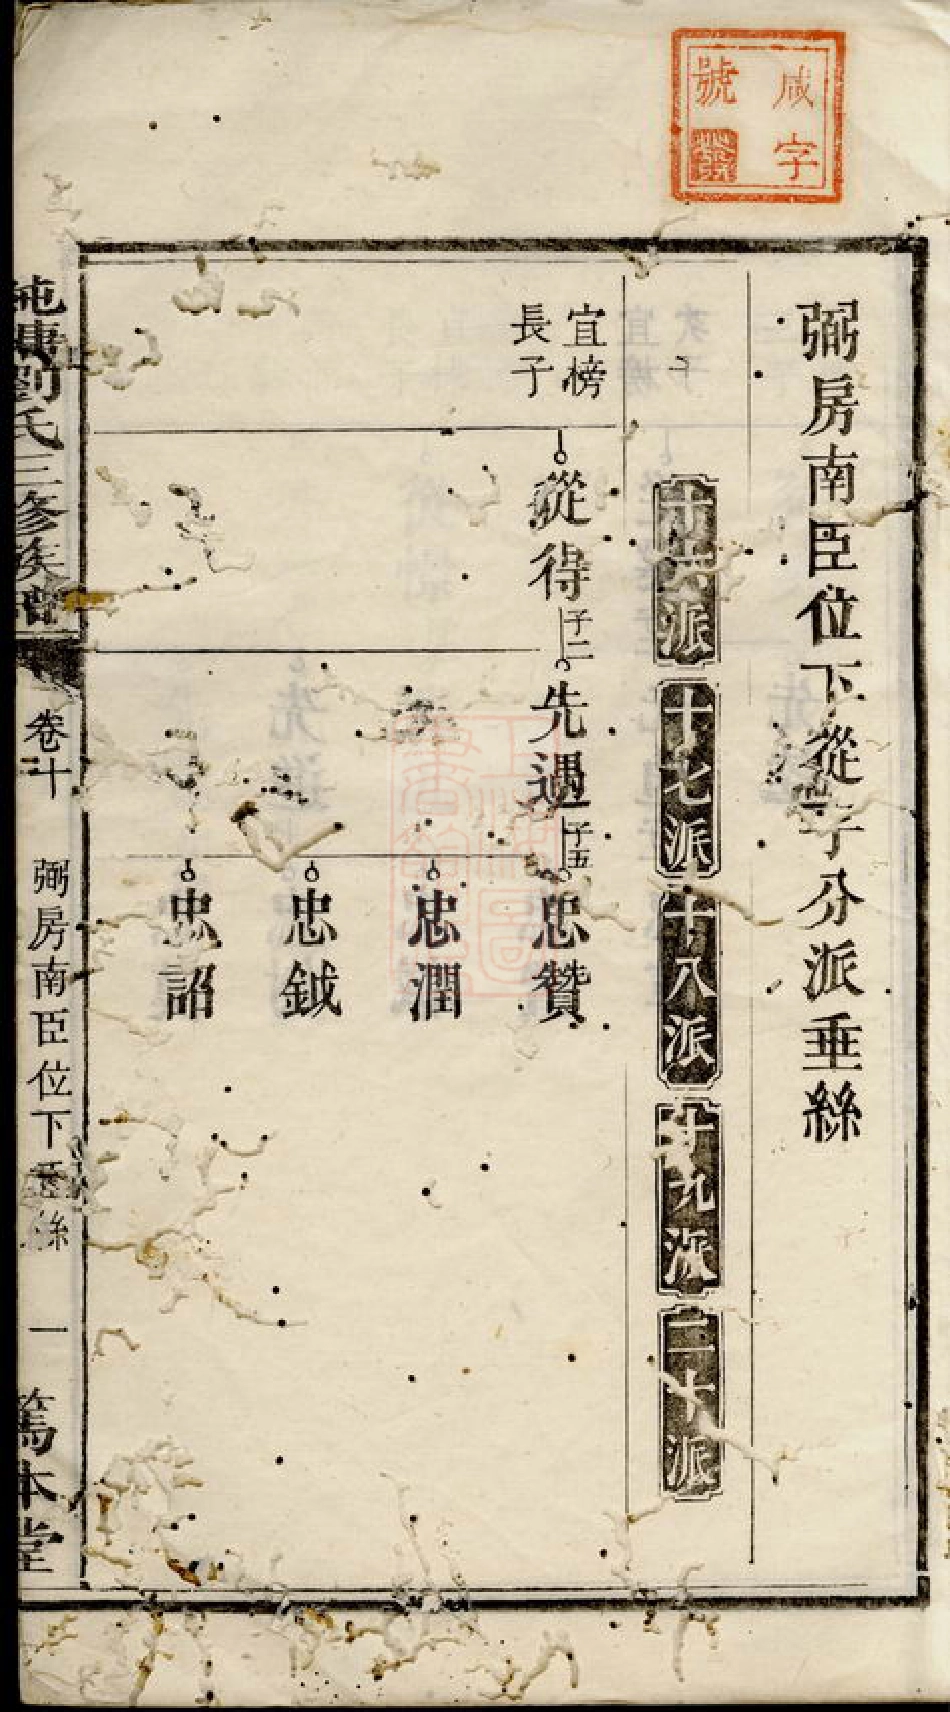 咸字
號
弼房南臣位下從字分派垂絲
十六派
十七派
十八派
十九派
二十派
宜榜
長子
從得
子二
先遇
子五
忠贊
忠潤
忠鉞
忠詔
劉氏三修族譜
卷十
弼房南臣位下垂絲
一
篤本堂